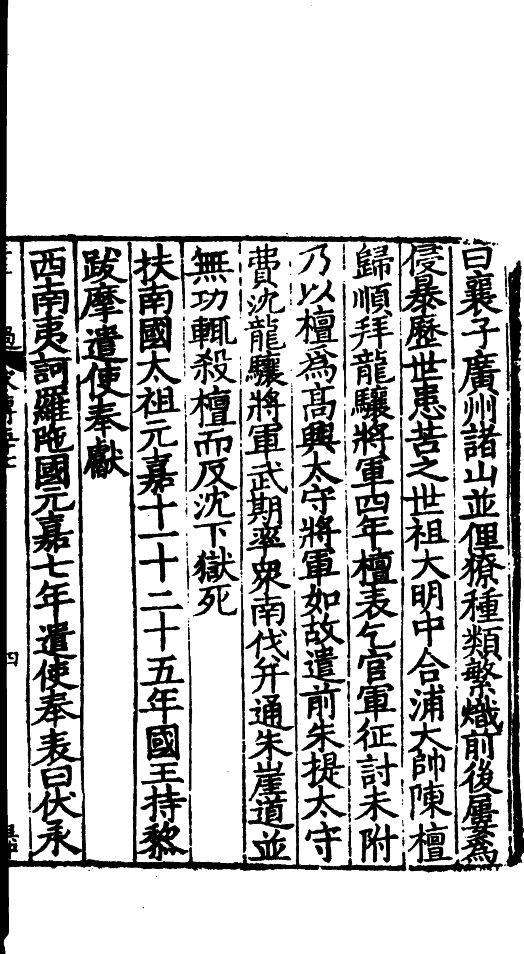 曰襄子廣州諸山並俚獠種類繁熾前後屢爲
侵暴歷世患苦之世祖大明中合浦大帥陳檀
歸順拜龍驤將軍四年檀表乞官軍征討未附
乃以檀爲高興太守將軍如故遣前朱提太守
費沈龍驤將軍武期率衆南伐并通朱崖道並
無功輒殺檀而反沈下獄死
扶南國太祖元嘉十一十二十五年國王持黎
跋摩遣使奉獻
西南夷訶羅陁國元嘉七年遣使奉表曰伏承
四